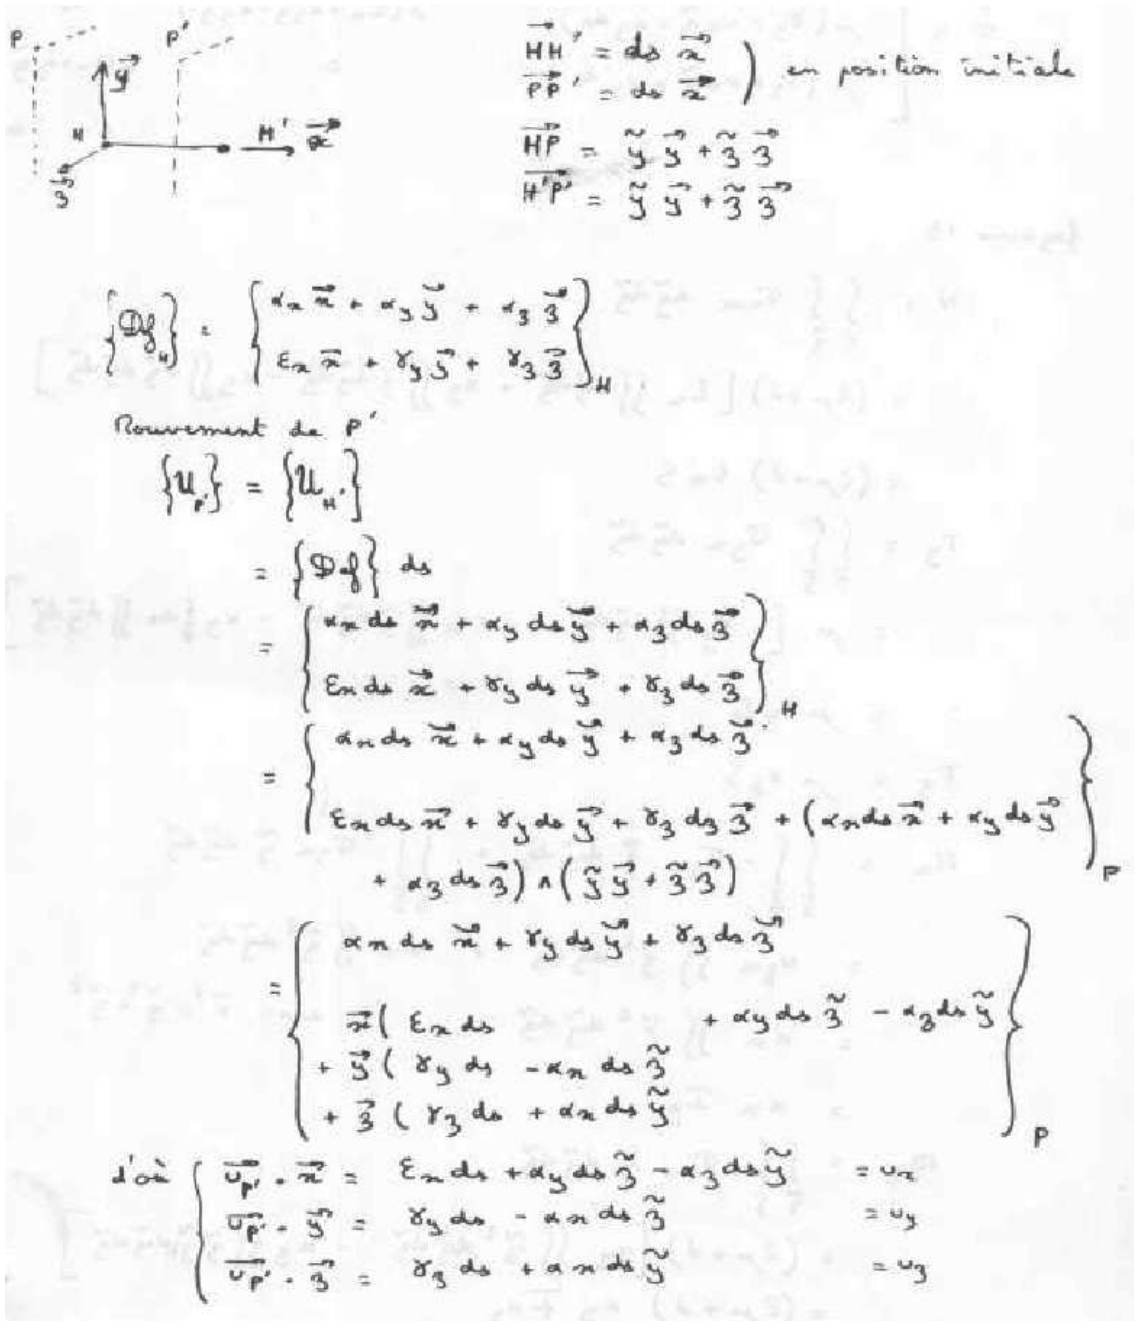 P P'
$\vec{y}$
H H' $\vec{x}$
$\vec{z}$
$\overrightarrow{HH'} = ds\ \vec{x}$
$\overrightarrow{PP'} = ds\ \vec{x}$ ) en position initiale
$\overrightarrow{HP} = \tilde{y}\ \vec{y} + \tilde{z}\ \vec{z}$
$\overrightarrow{H'P'} = \tilde{y}\ \vec{y} + \tilde{z}\ \vec{z}$
{Def_H} = { αx $\vec{x}$ + αy $\vec{y}$ + αz $\vec{z}$
εx $\vec{x}$ + γy $\vec{y}$ + γz $\vec{z}$ }_H
Mouvement de P'
{U_P'} = {U_H'}
= {Def} ds
= { αx ds $\vec{x}$ + αy ds $\vec{y}$ + αz ds $\vec{z}$
εx ds $\vec{x}$ + γy ds $\vec{y}$ + γz ds $\vec{z}$ }_H
= { αx ds $\vec{x}$ + αy ds $\vec{y}$ + αz ds $\vec{z}$
εx ds $\vec{x}$ + γy ds $\vec{y}$ + γz dz $\vec{z}$ + (αx ds $\vec{x}$ + αy ds $\vec{y}$
+ αz ds $\vec{z}$) ∧ ($\tilde{y}\ \vec{y} + \tilde{z}\ \vec{z}$) }_P
= { αx ds $\vec{x}$ + γy ds $\vec{y}$ + γz ds $\vec{z}$
$\vec{x}$ ( εx ds + αy ds $\tilde{z}$ - αz ds $\tilde{y}$
+ $\vec{y}$ ( γy ds - αx ds $\tilde{z}$
+ $\vec{z}$ ( γz ds + αx ds $\tilde{y}$ }_P
d'où { $\vec{U_{P'}} \cdot \vec{x}$ = εx ds + αy ds $\tilde{z}$ - αz ds $\tilde{y}$ = ux
$\vec{U_{P'}} \cdot \vec{y}$ = γy ds - αx ds $\tilde{z}$ = uy
$\vec{U_{P'}} \cdot \vec{z}$ = γz ds + αx ds $\tilde{y}$ = uz